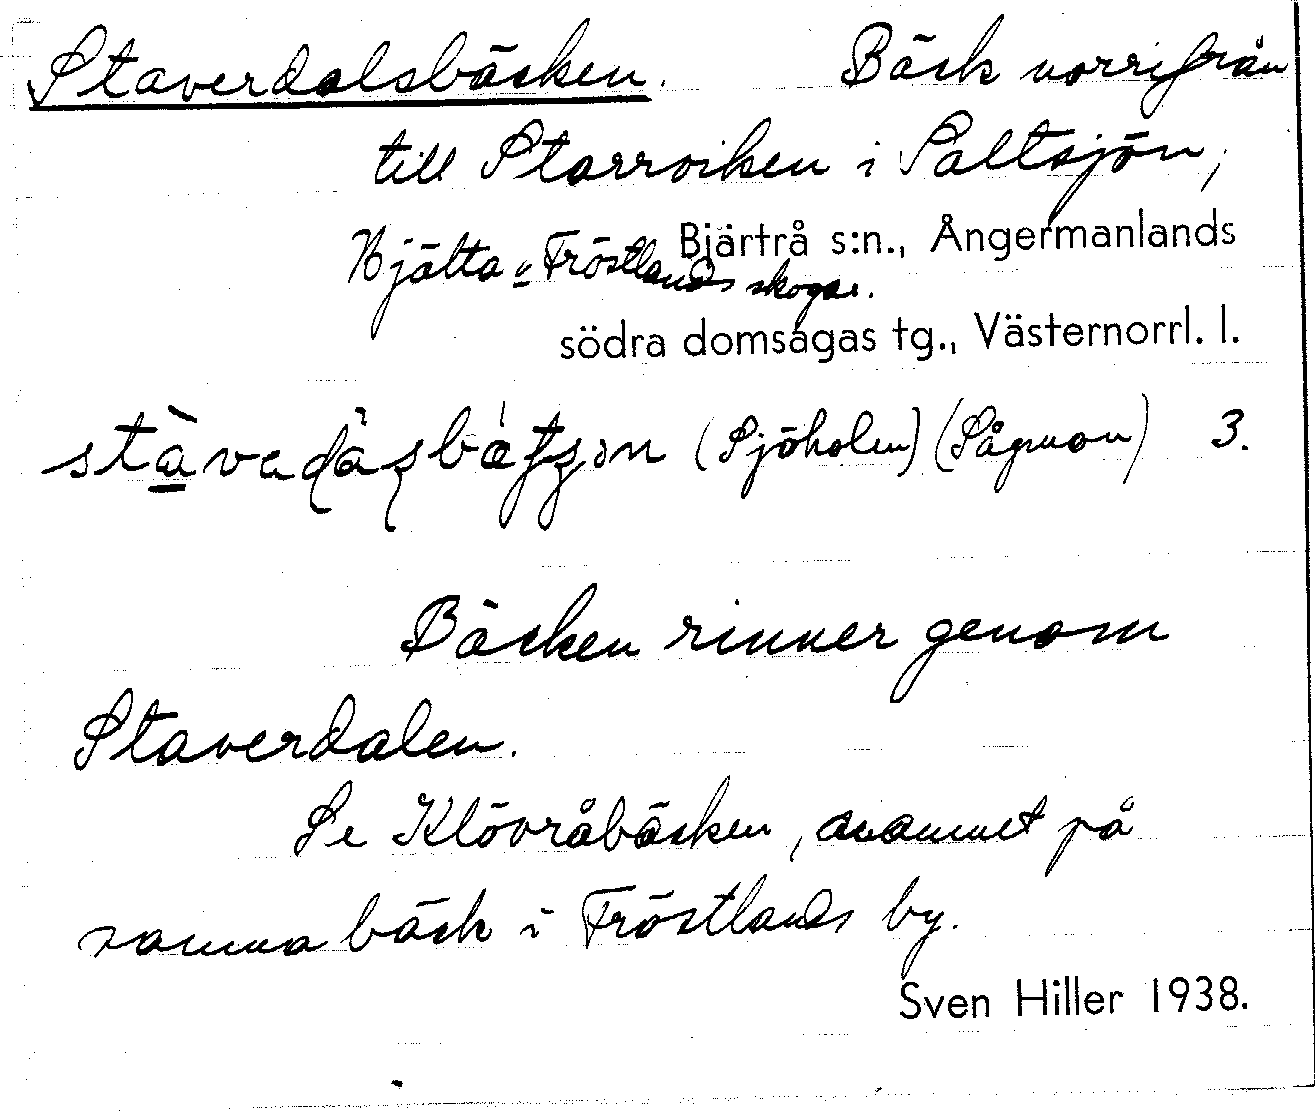 Staverdalsbäcken. Bäck norrifrån
till Starrviken i Saltsjön,
Bjärtrå s:n., Ångermanlands
Hjälta o Fröstlands skogar.
södra domsagas tg., Västernorrl. l.
(Sjöholm) (Sågmon) 3.
Bäcken rinner genom
Staverdalen.
Se Klövråbäcken, namnet på
samma bäck i Fröstlands by.
Sven Hiller 1938.